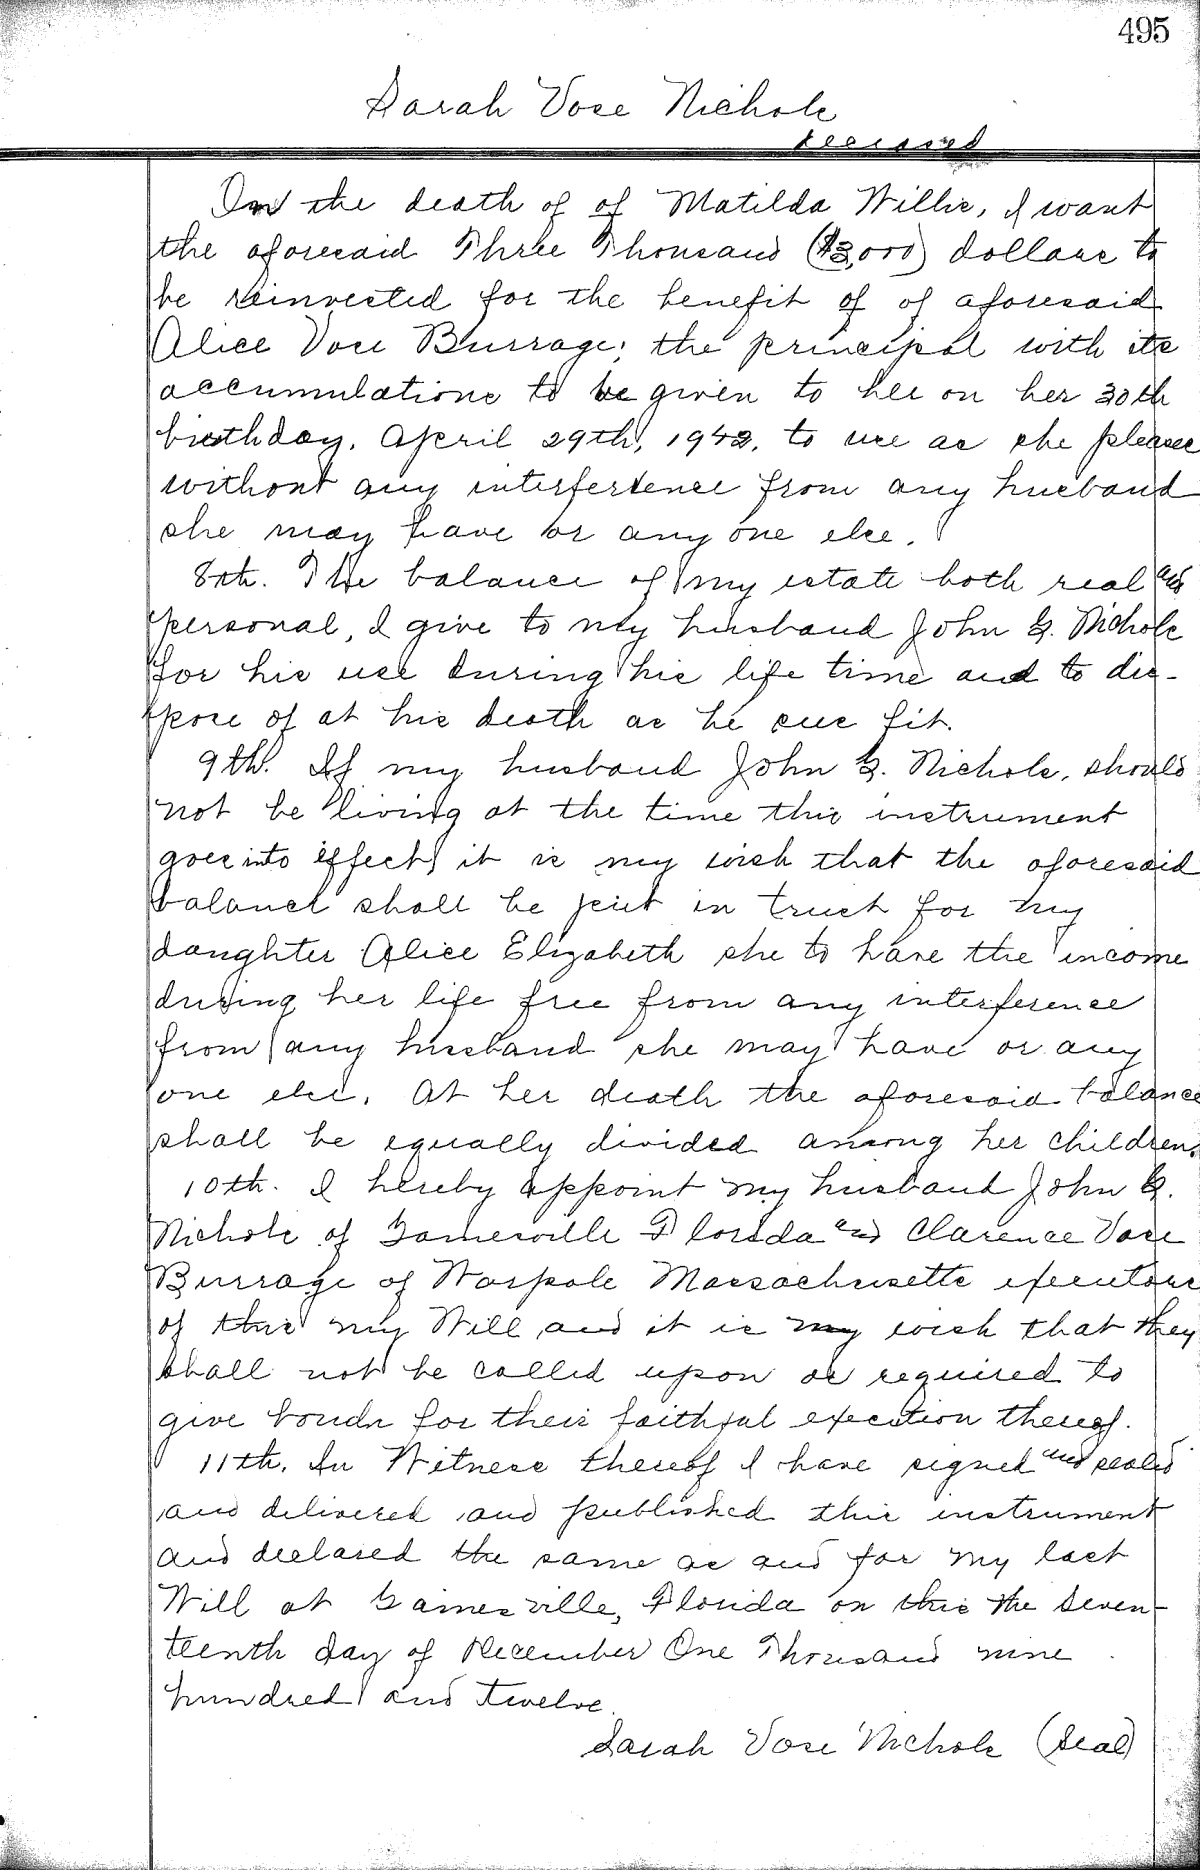 495
Sarah Vose Nichols
deceased
On the death of of Matilda Willis, I want
the aforesaid Three Thousand ($3,000) dollars to
be reinvested for the benefit of of aforesaid
Alice Vose Burrage; the principal with its
accumulations to be given to her on her 30th
birthday, April 29th, 1942, to use as she pleases
without any interference from any husband
she may have or any one else.
8th. The balance of my estate both real and
personal, I give to my husband John G. Nichols
for his use during his life time and to dis-
pose of at his death as he sees fit.
9th. If my husband John G. Nichols, should
not be living at the time this instrument
goes into effect, it is my wish that the aforesaid
balance shall be put in trust for my
daughter Alice Elizabeth she to have the income
during her life free from any interference
from any husband she may have or any
one else. At her death the aforesaid balance
shall be equally divided among her children.
10th. I hereby appoint my husband John G.
Nichols of Gainesville Florida and Clarence Vose
Burrage of Walpole Massachusetts executors
of this my Will and it is my wish that they
shall not be called upon or required to
give bonds for their faithful execution thereof.
11th. In Witness thereof I have signed and sealed
and delivered and published this instrument
and declared the same as and for my last
Will at Gainesville, Florida on this the Seven-
teenth day of December One Thousand nine
hundred and twelve.
Sarah Vose Nichols (Seal)